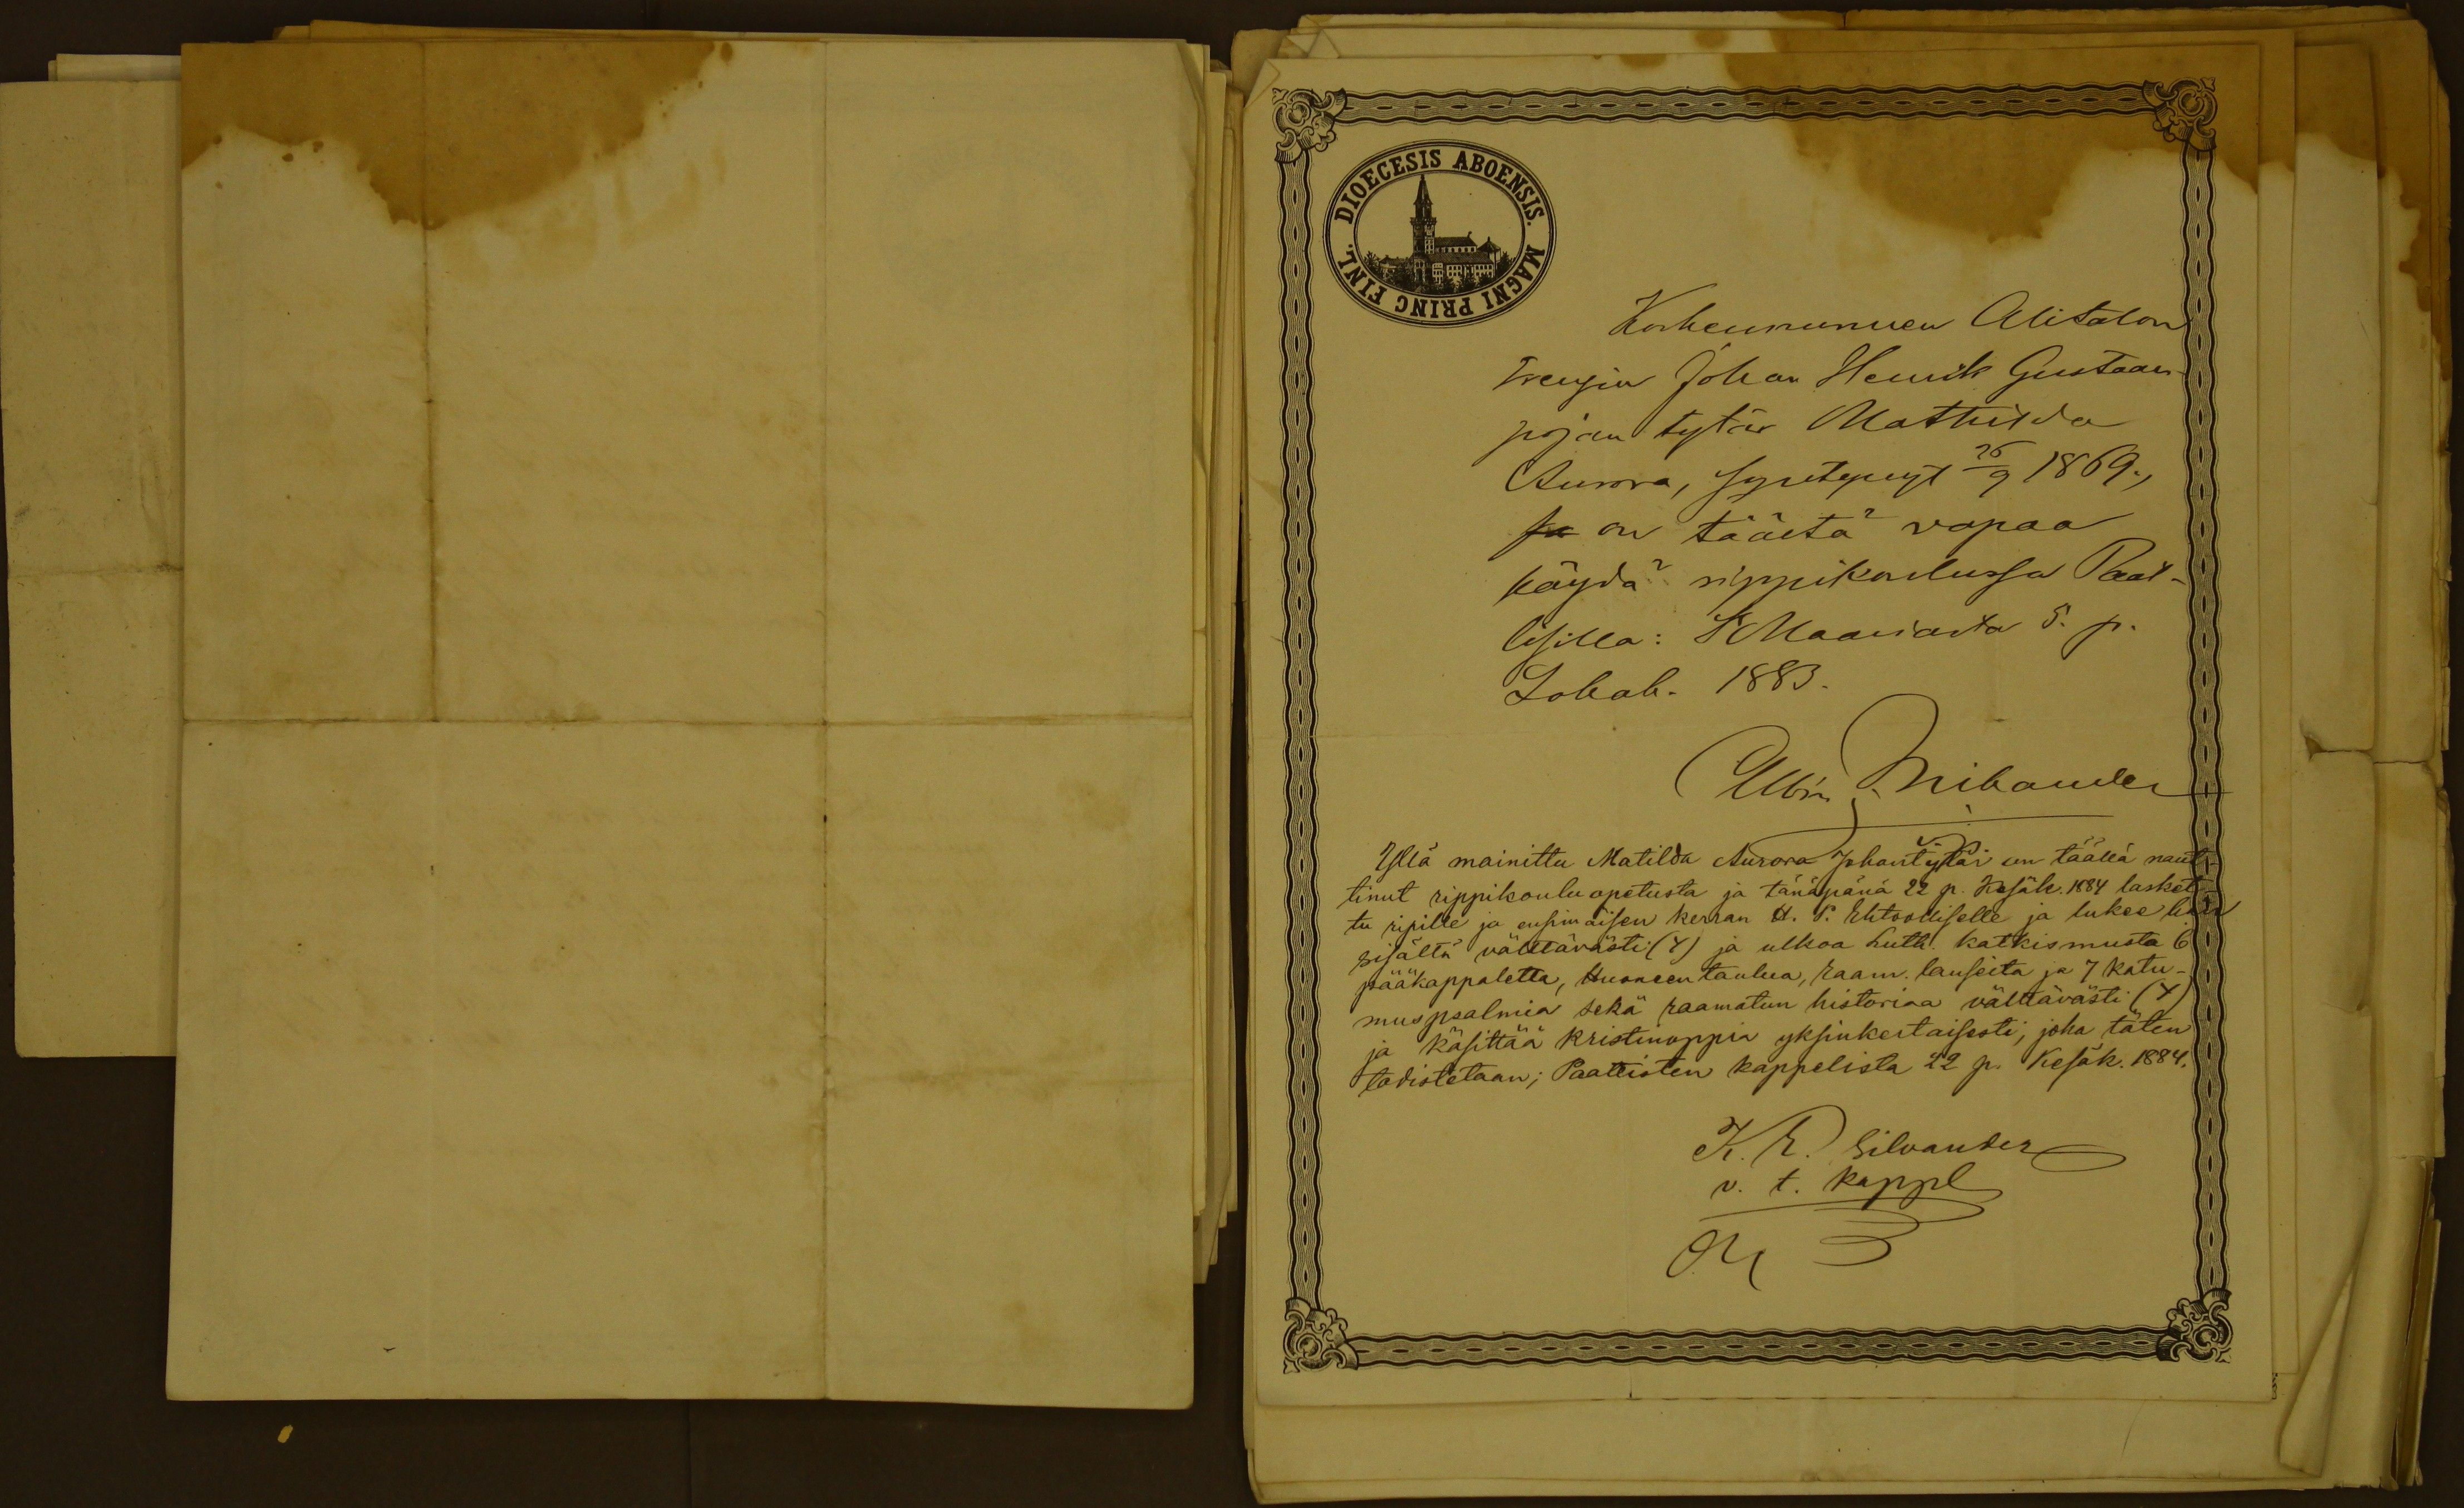 DIOECESIS ABOENSIS. MAGNI PRINC FINL.
Korkeunummen Alitalon
rengin Johan Henrik Gustaan-
pojan tytär Mathilda
Aurora, syntynyt 26/9 1869.,
ja on täältä vapaa
käydä rippikoulussa Paat-
tisilla: Maariasta 5. p.
Lokak. 1883.
Albin Nikander
Yllä mainittu Matilda Aurora Johantytär on täällä naut-
tinut rippikoulu opetusta ja tänäpänä 22 p. Kesäk. 1884 lasket-
tu ripille ja ensimäisen kerran H. P. Ehtoolliselle ja lukee hän
sisältä välttävästi (4) ja ulkoa Luth. katkismusta 6
pääkappaletta, Huoneentaulua, raam. lauseita ja 7 katu-
muspsalmia sekä raamatun historiaa välttävästi (4)
ja käsittää kristinoppia yksinkertaisesti; joka täten
todistetaan; Paattisten kappelista 22 p. Kesäk. 1884.
K. E. Silvander
v. t. kappl